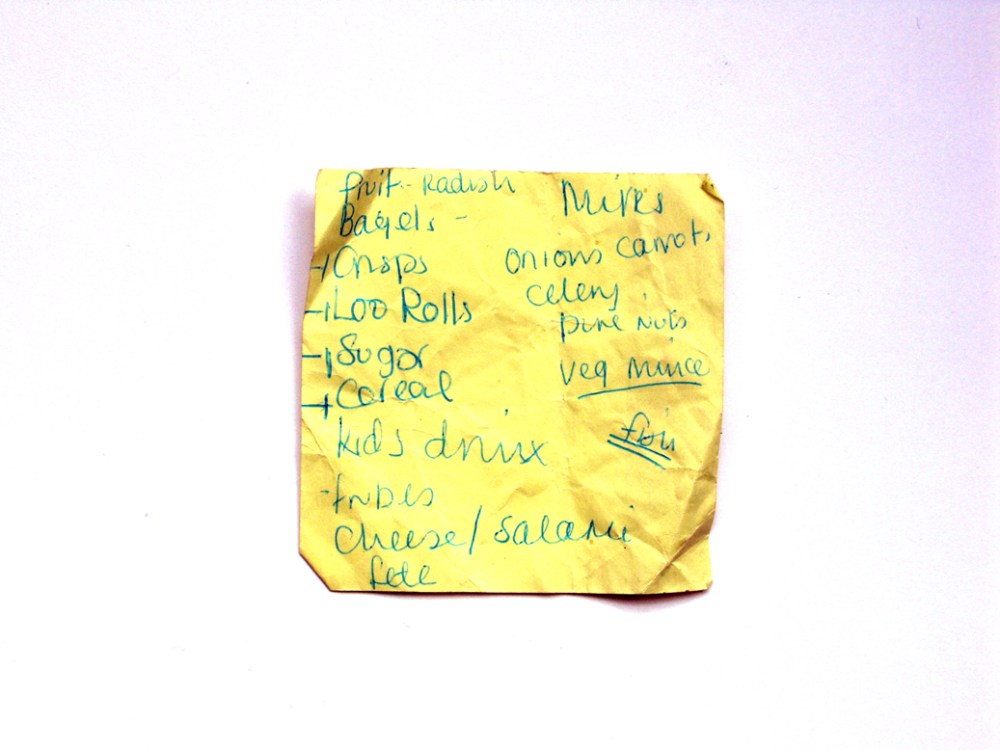 fruit - Radish
Bagels -
Crisps
Loo Rolls
Sugar
Cereal
kids drinx
frubes
Cheese/Salami
fete
onions carrots
celery
pine nuts
veg mince
foil